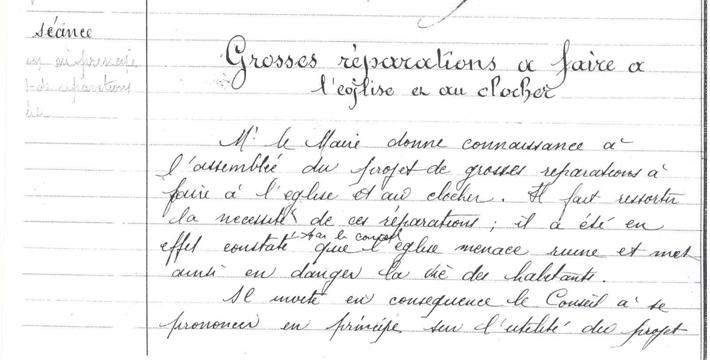 séance
en principe
de réparations
Grosses réparations a faire a
l'eglise et au clocher
Mr le Maire donne connaissance à
l'assemblée du projet de grosses reparations à
faire à l'eglise et au clocher. Il fait ressortir
la necessité de ces réparations ; il a été en
par le conseil
effet constaté que l'eglise menace ruine et met
ainsi en danger la vie des habitants.
Il invite en consequence le Conseil à se
prononcer en principe sur l'utilité du projet